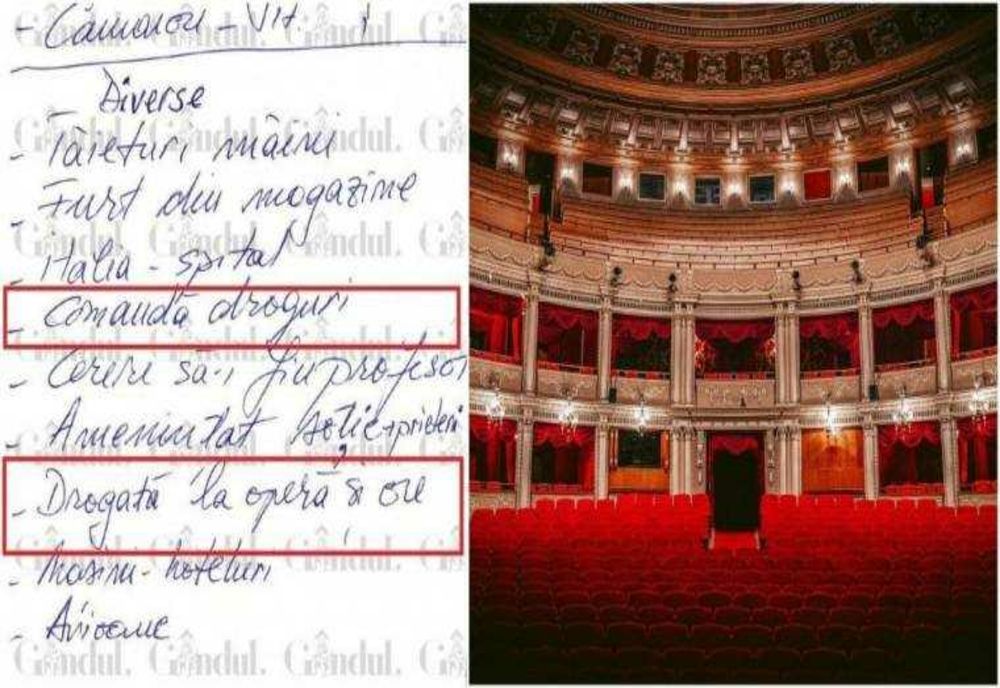 - Cămarou - VIt
Diverse
- Tăieturi mâini
- Furt din magazine
- italia - spital
- Comandă droguri
- Cerere să-i fiu profesor
- Amenințat soție+prieteni
- Drogată la operă și ore
- Mașini - hoteluri
-
Gândul. Gândul. Gândul.